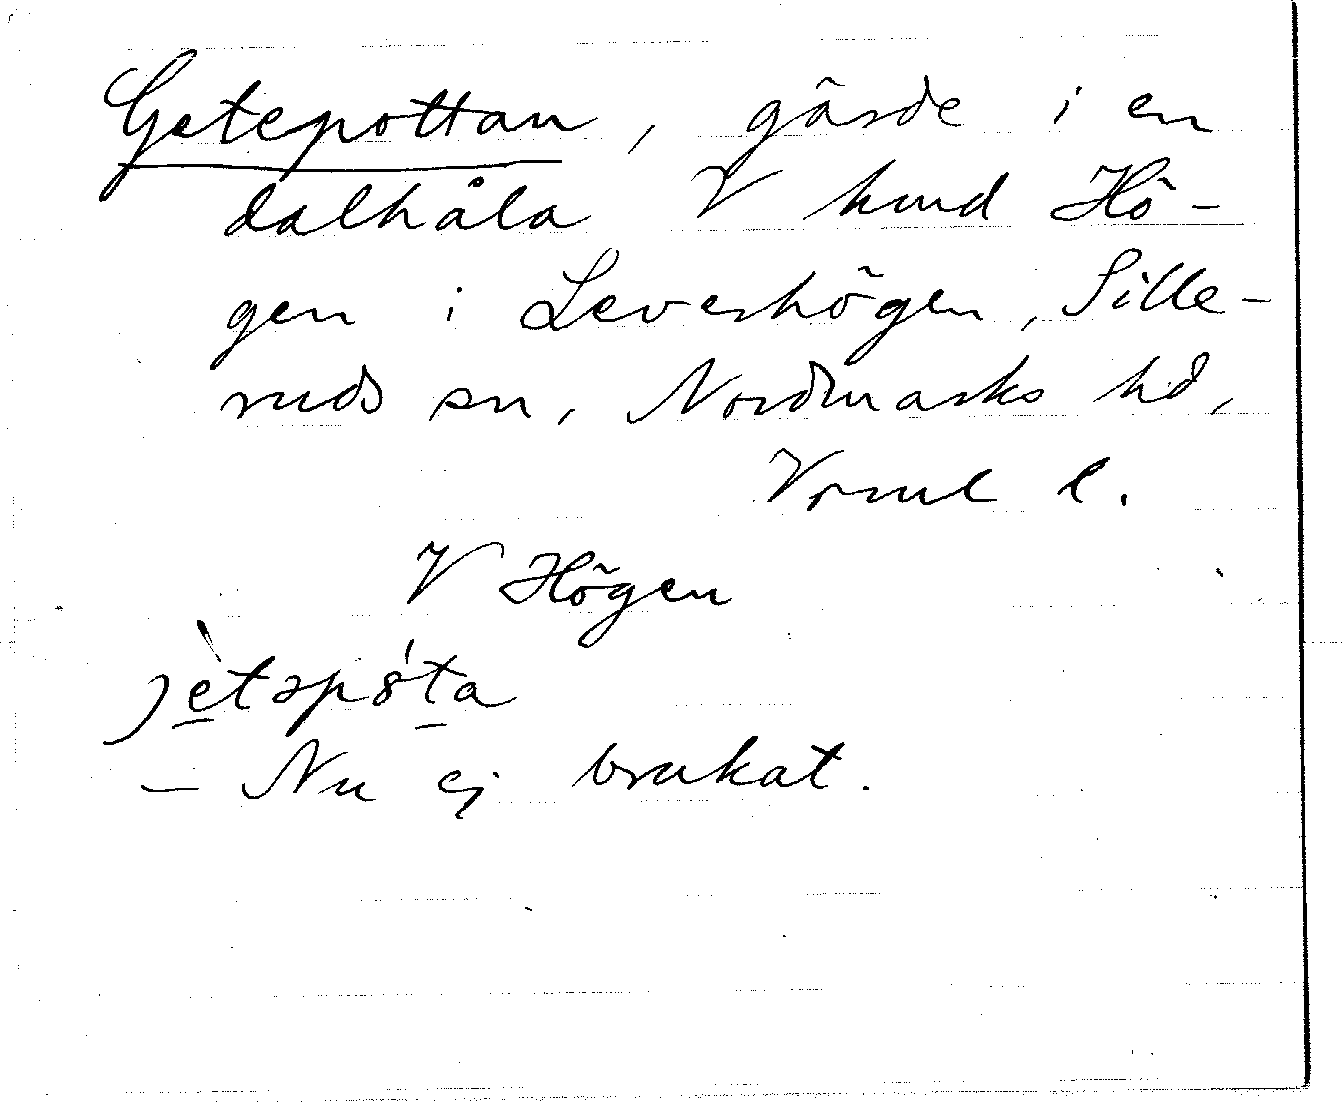 Getepottan, gärde i en
dalhåla V hmd Hö-
gen i Levershögen, Sille-
ruds sn, Nordmarks hd,
Vrml l.
V Högen
– Nu ej brukat.